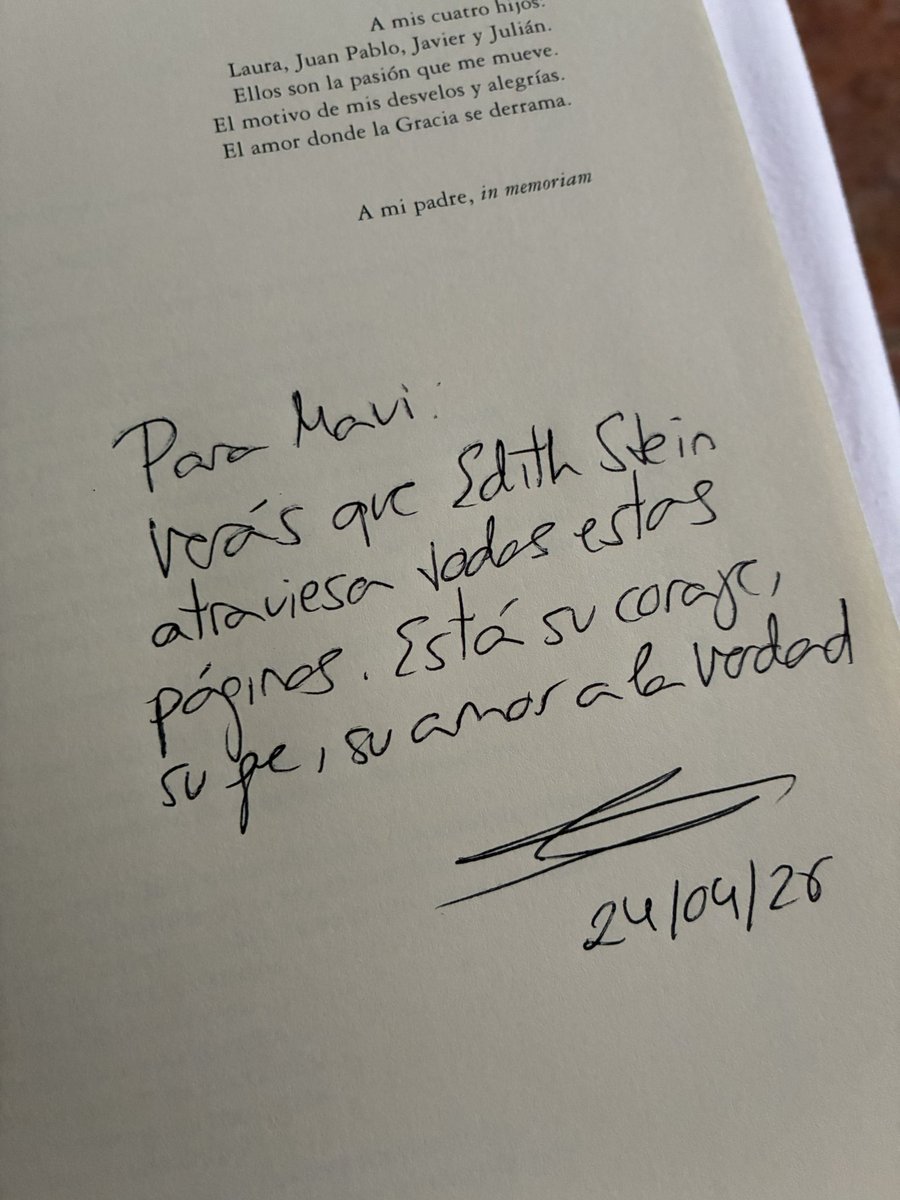 A mis cuatro hijos:
Laura, Juan Pablo, Javier y Julián.
Ellos son la pasión que me mueve.
El motivo de mis desvelos y alegrías.
El amor donde la Gracia se derrama.
A mi padre, in memoriam
Para Mavi:
verás que Edith Stein
atraviesa todas estas
páginas. Está su coraje,
su fe, su amor a la verdad
24/04/26